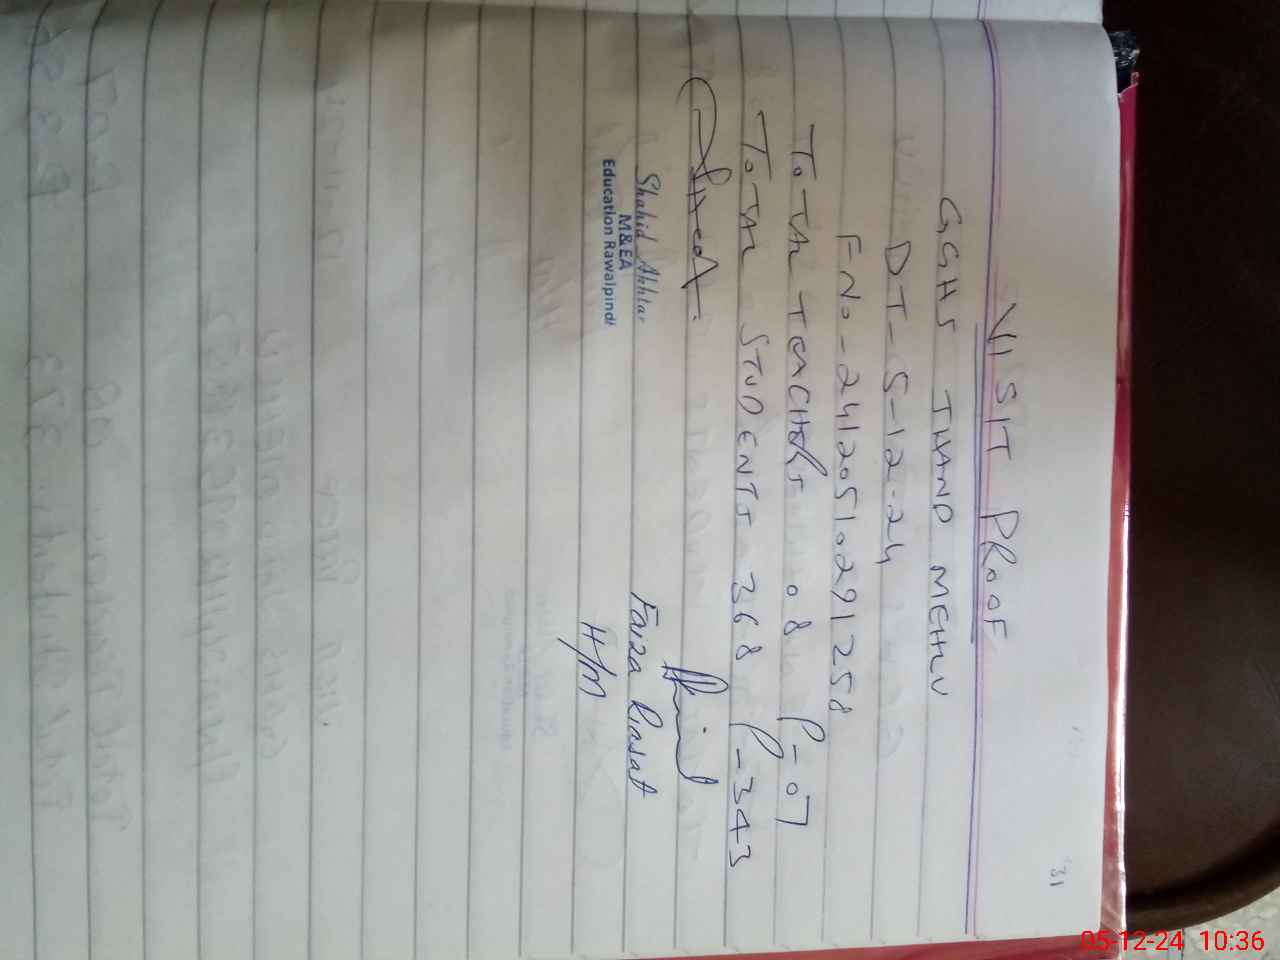 31
VISIT PROOF
GGHS THAND MEHU
DT-5-12-24
FNo-24120510291258
TOTAL TEACHERS 08 P-07
TOTAL STUDENTS 368 P-343
Shahid Akhtar
M&EA
Education Rawalpindi
Faiza Riasat
H/M
05-12-24 10:36